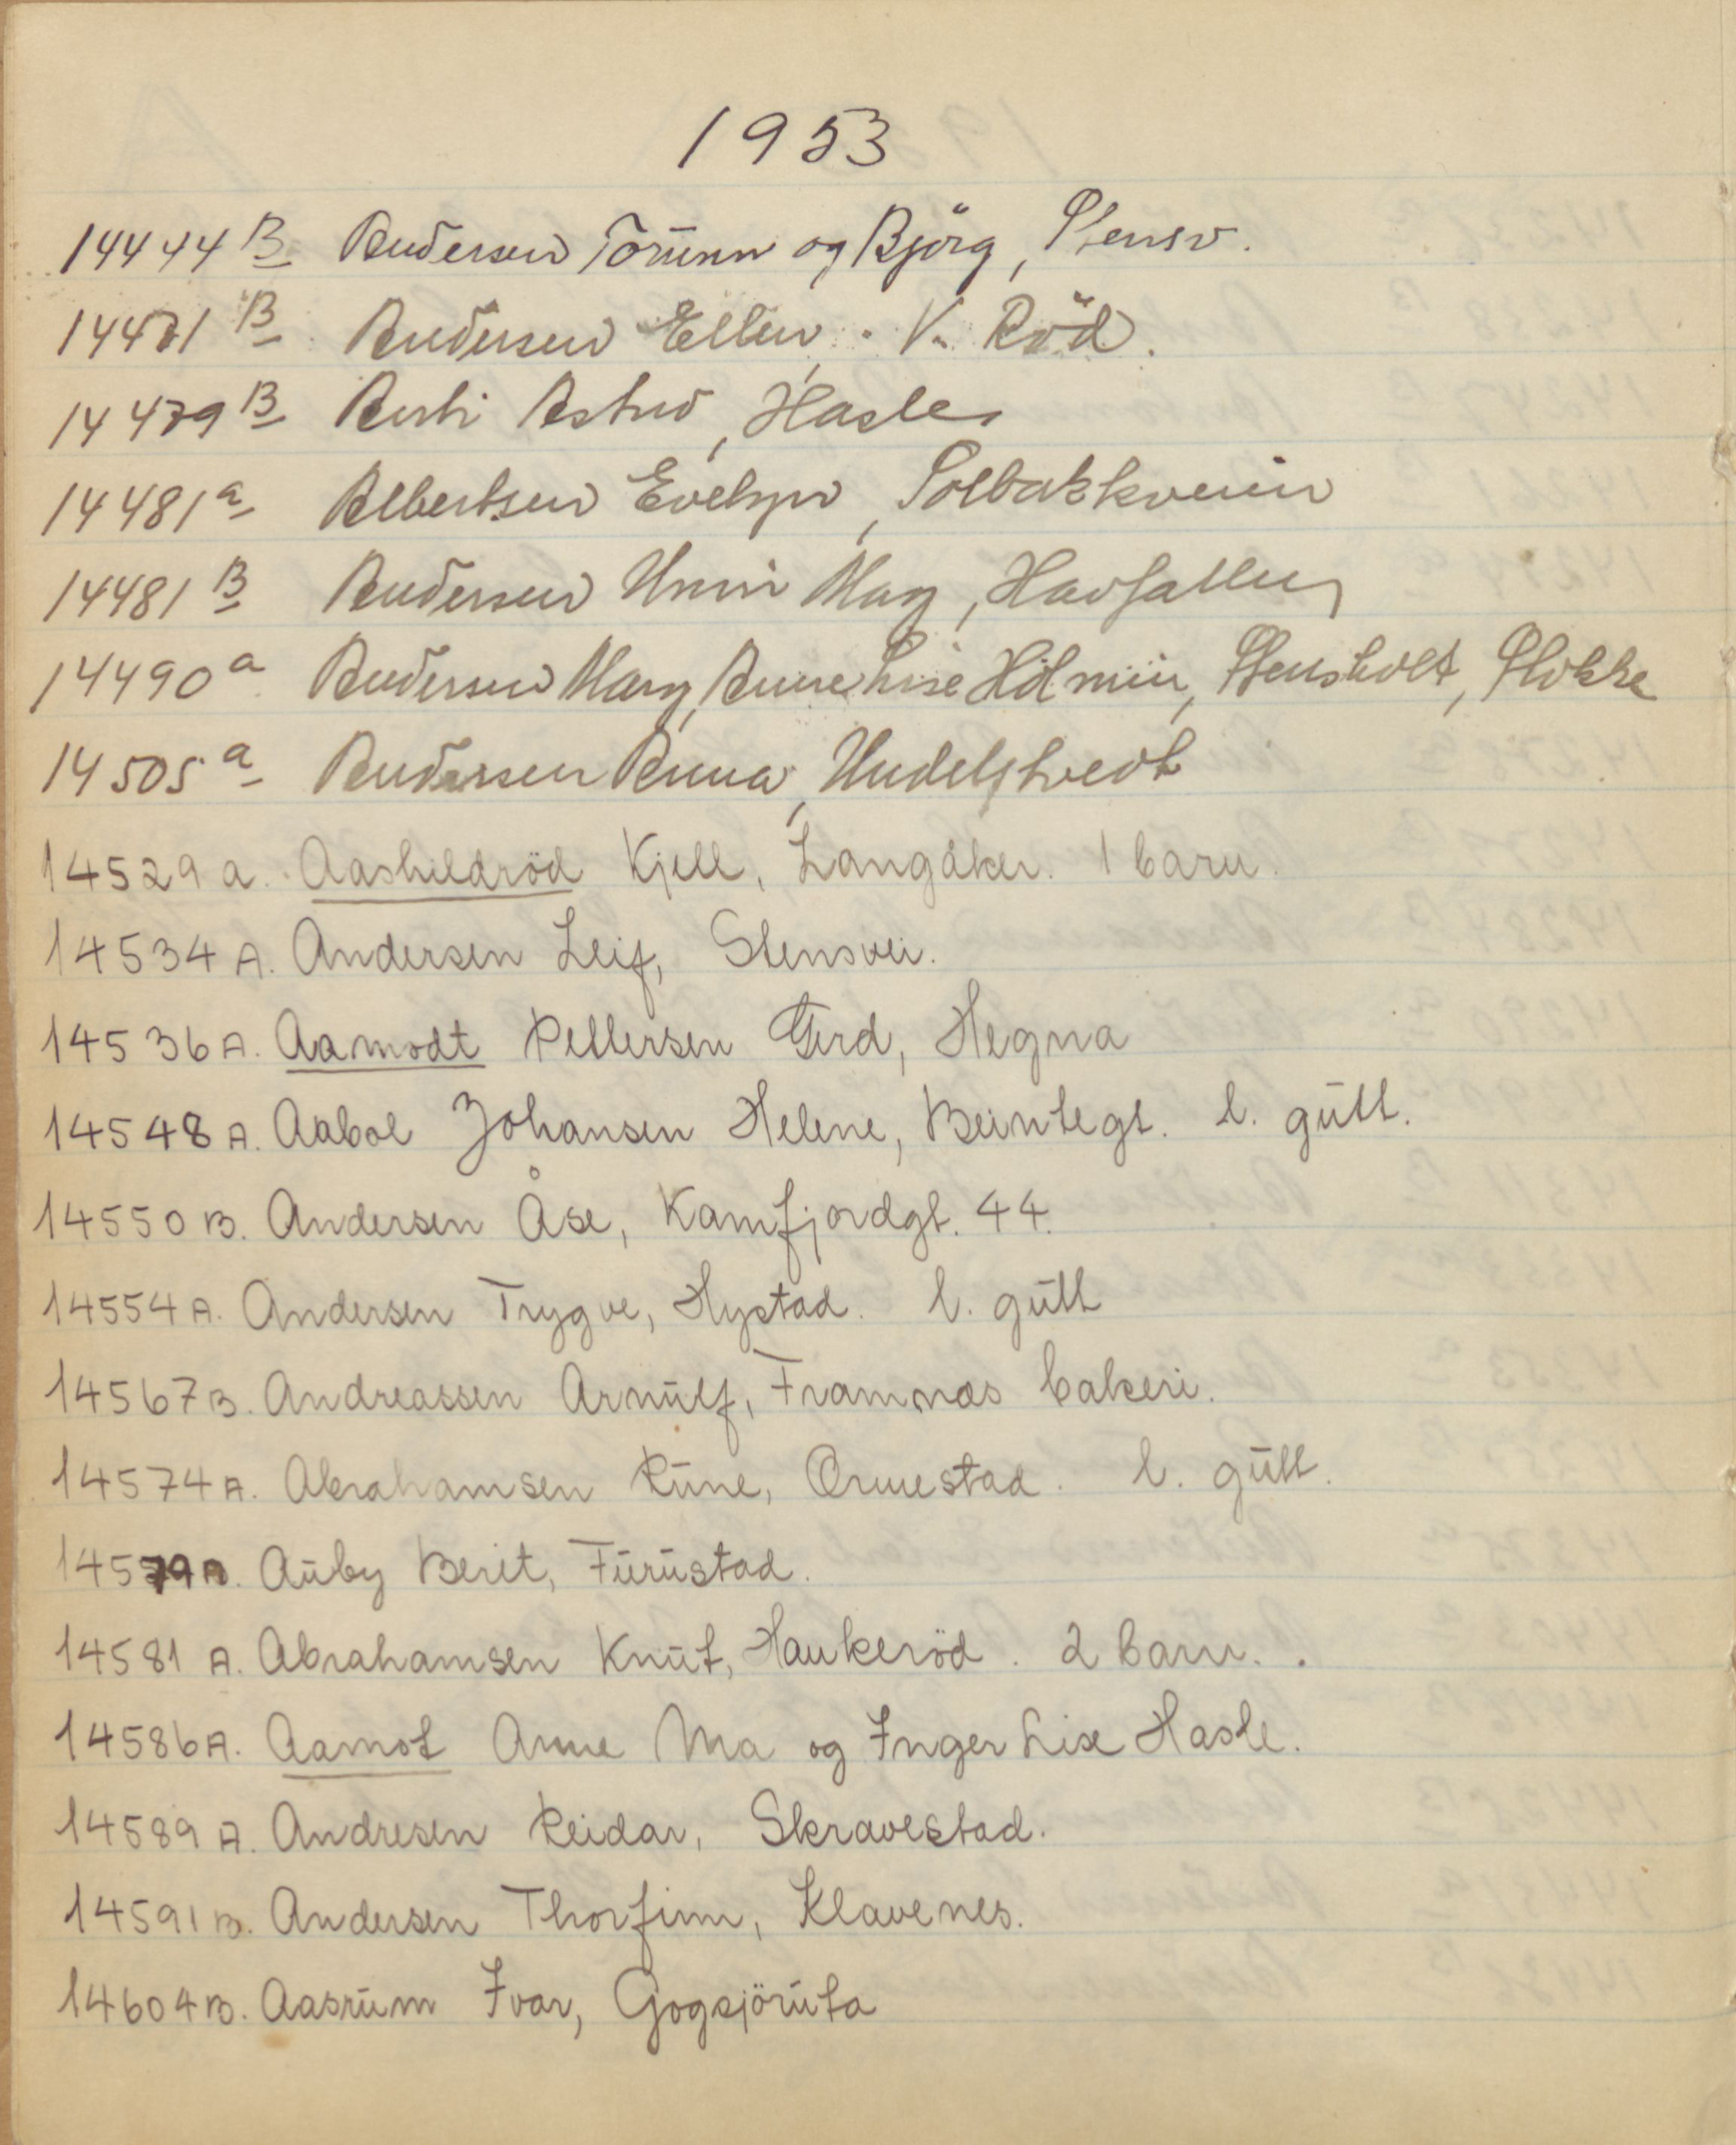 1953
14444 B Andersen Torunn og Björg, Stensv.
14471 B Andersen Ellen, V. Röd.
14479 B Astrid, Hasle
14481 a Albertsen Evelyn, Solbakkveien
14481 B Andersen Unni May, Havfallen
14490 a Andersen Mary, Anne Lise Stensholt, Stokke
14505 a Andersen Anna, Undelstvedt
14529 a. Aashildröd Kjell, Langåker. 1 barn.
14534 A. Andersen Leif, Stensvei.
14536 A. Aamodt Pettersen Gerd, Hegna
14548 A. Aabol Johansen Helene, Beintegt. l. gutt.
14550 B. Andersen Åse, Kamfjordgt. 44.
14554 A. Andersen Trygve, Hystad. l. gutt
14567 B. Andreassen Arnulf, Framnæs bakeri.
14574 A. Abrahamsen Rune, Ormestad. l. gutt.
14579 A. Auby Berit, Furustad.
14581 A. Abrahamsen Knut, Haukeröd. 2 barn.
14586 A. Aamot Anne Ma og Inger Lise Hasle.
14589 A. Andresen Reidar, Skravestad.
14591 B. Andersen Thorfinn, Klavenes.
14604 B. Aasrum Ivar, Gogsjöruta